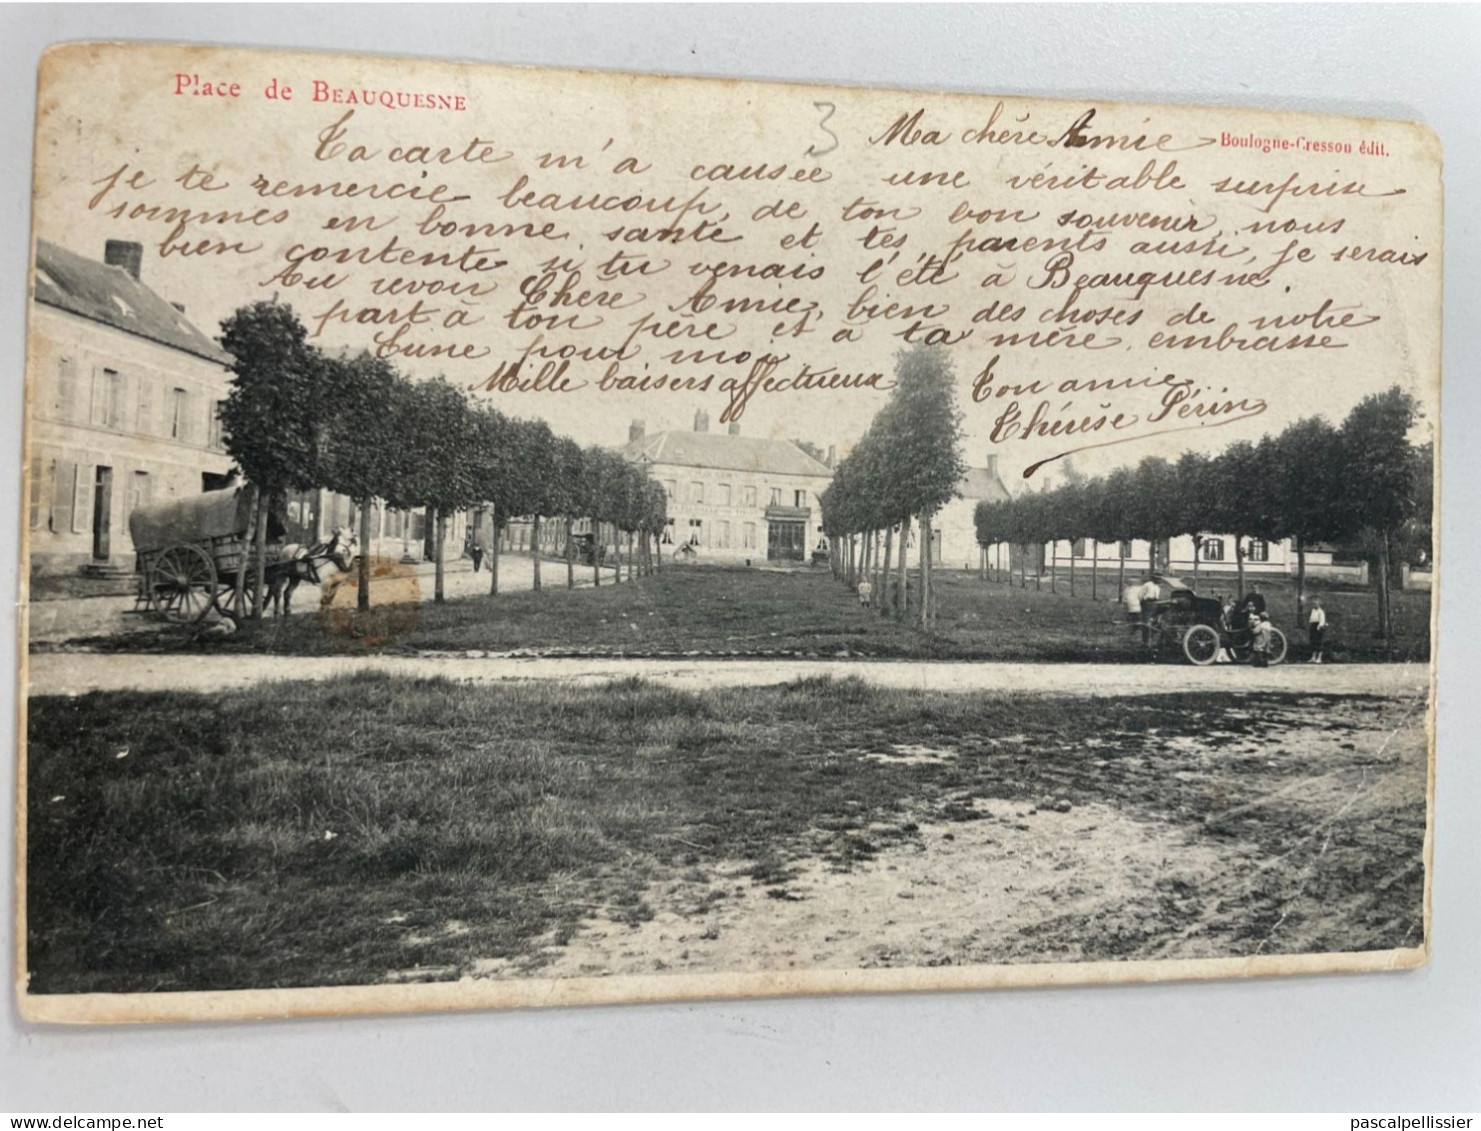 Place de BEAUQUESNE
3
Boulogne-Cresson édit.
Ma chère Amie
Ta carte m'a causée une véritable surprise
je te remercie beaucoup de ton bon souvenir, nous
sommes en bonne santé et tes parents aussi, je serais
bien contente si tu venais l'été à Beauquesne.
Au revoir Chère Amie, bien des choses de notre
part à ton père et à ta mère, embrasse
Mille baisers affectueux
Ton amie
Thérèse Périn
pascalpellissier